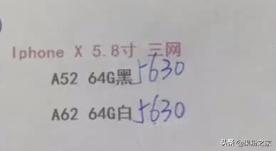 Iphone X 5.8寸 三网
A52 64G黑 5630
A62 64G白 5630
头条 @果粉之家